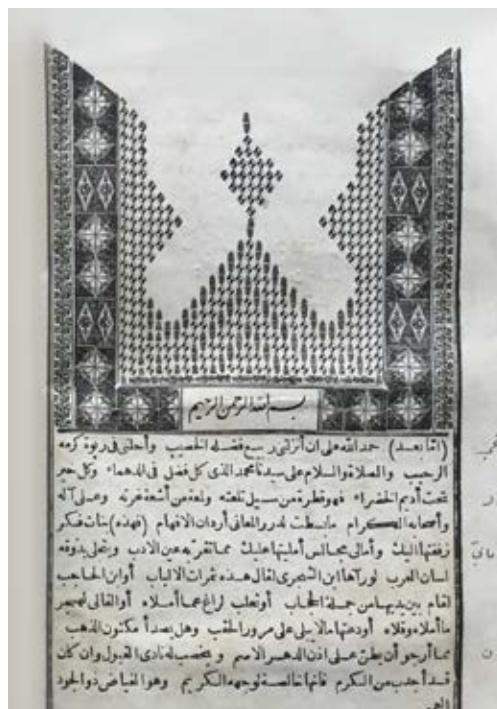 بسم الله الرحمن الرحيم
(أما بعد) حمد الله على ان أنزلني ربيع فضله الخصيب وأحلني في ربوة كرمه
الرحيب والصلاة والسلام على سيدنا محمد الذي كل فضل في الدهماء وكل خير
تحت أديم الخضراء فهو قطرة من سيل تلعته ولمعة من أشعة غرته وعلى آله
وأصحابه الكرام مابسطت لدرر المعاني أردان الافهام (فهذه) بنات فكر
زففتها اليك وأمالي مجالس أمليتها عليك مما تقر به عين الادب ويتحلى بذوقه
لسان العرب لو رآها ابن الشجري لقال هذه ثمرات الالباب أوابن الحاجب
لقام بين يديها من جملة الحجاب أوثعلب لراغ عما أملاه أوالقالي لهجر
ماأملاه وقلاه أودعتها مالا يبلى على مرور الحقب وهل يصدأ مكنون الذهب
مما أرجو أن يطن على اذن الدهر الاصم ويخصب له نادى القبول وان كان
قد أجدب من الكرم فانها خالصة لوجهه الكريم وهو الفياض ذو الجود